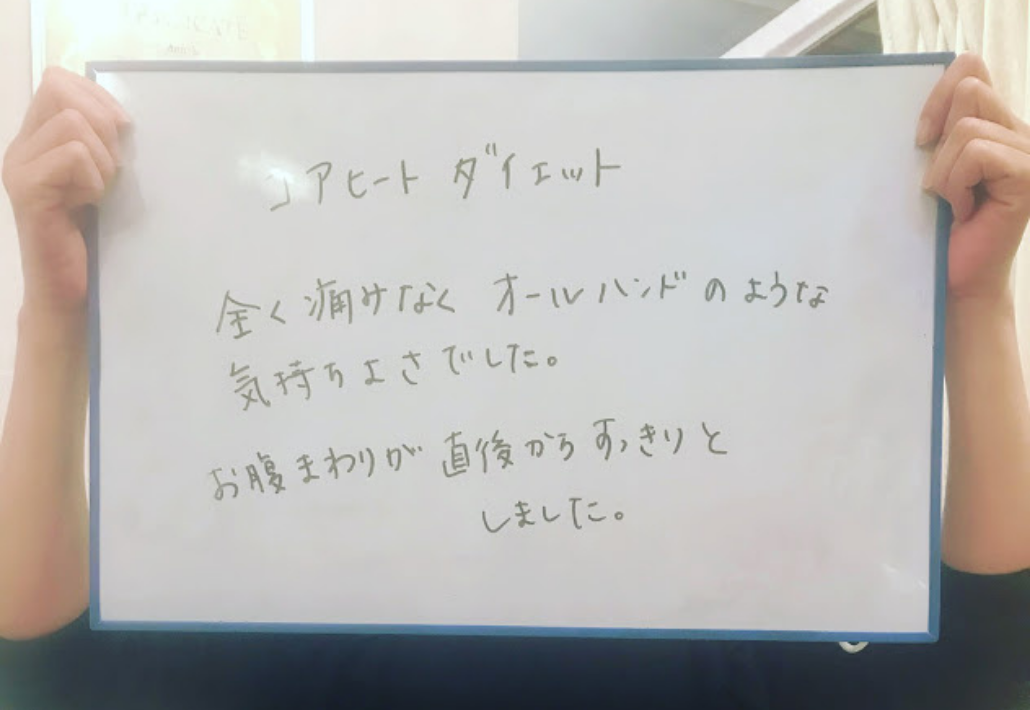 コアヒート ダイエット
全く痛みなく オールハンドのような
気持ちよさでした。
お腹まわりが 直後からすっきりと
しました。